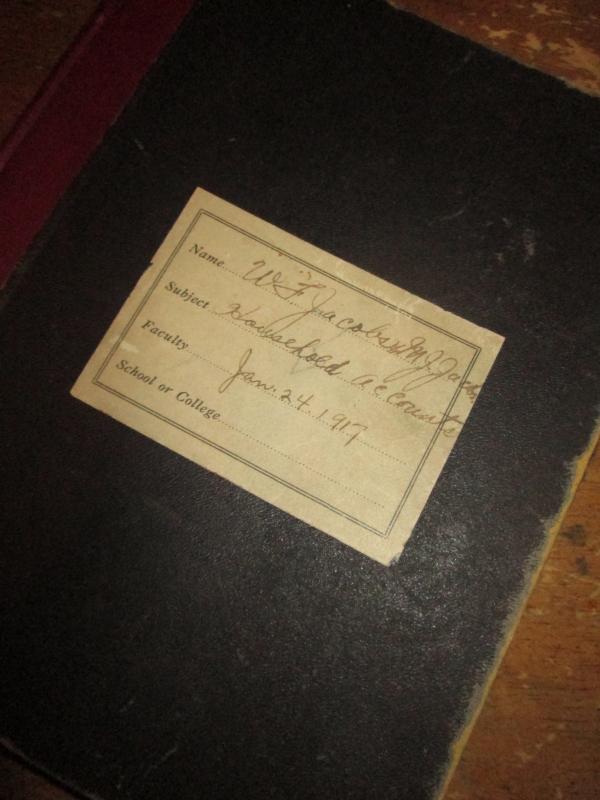 Name W. F. Jacobs & M. J. Jacobs
Subject Household accounts
Faculty Jan. 24. 1917
School or College